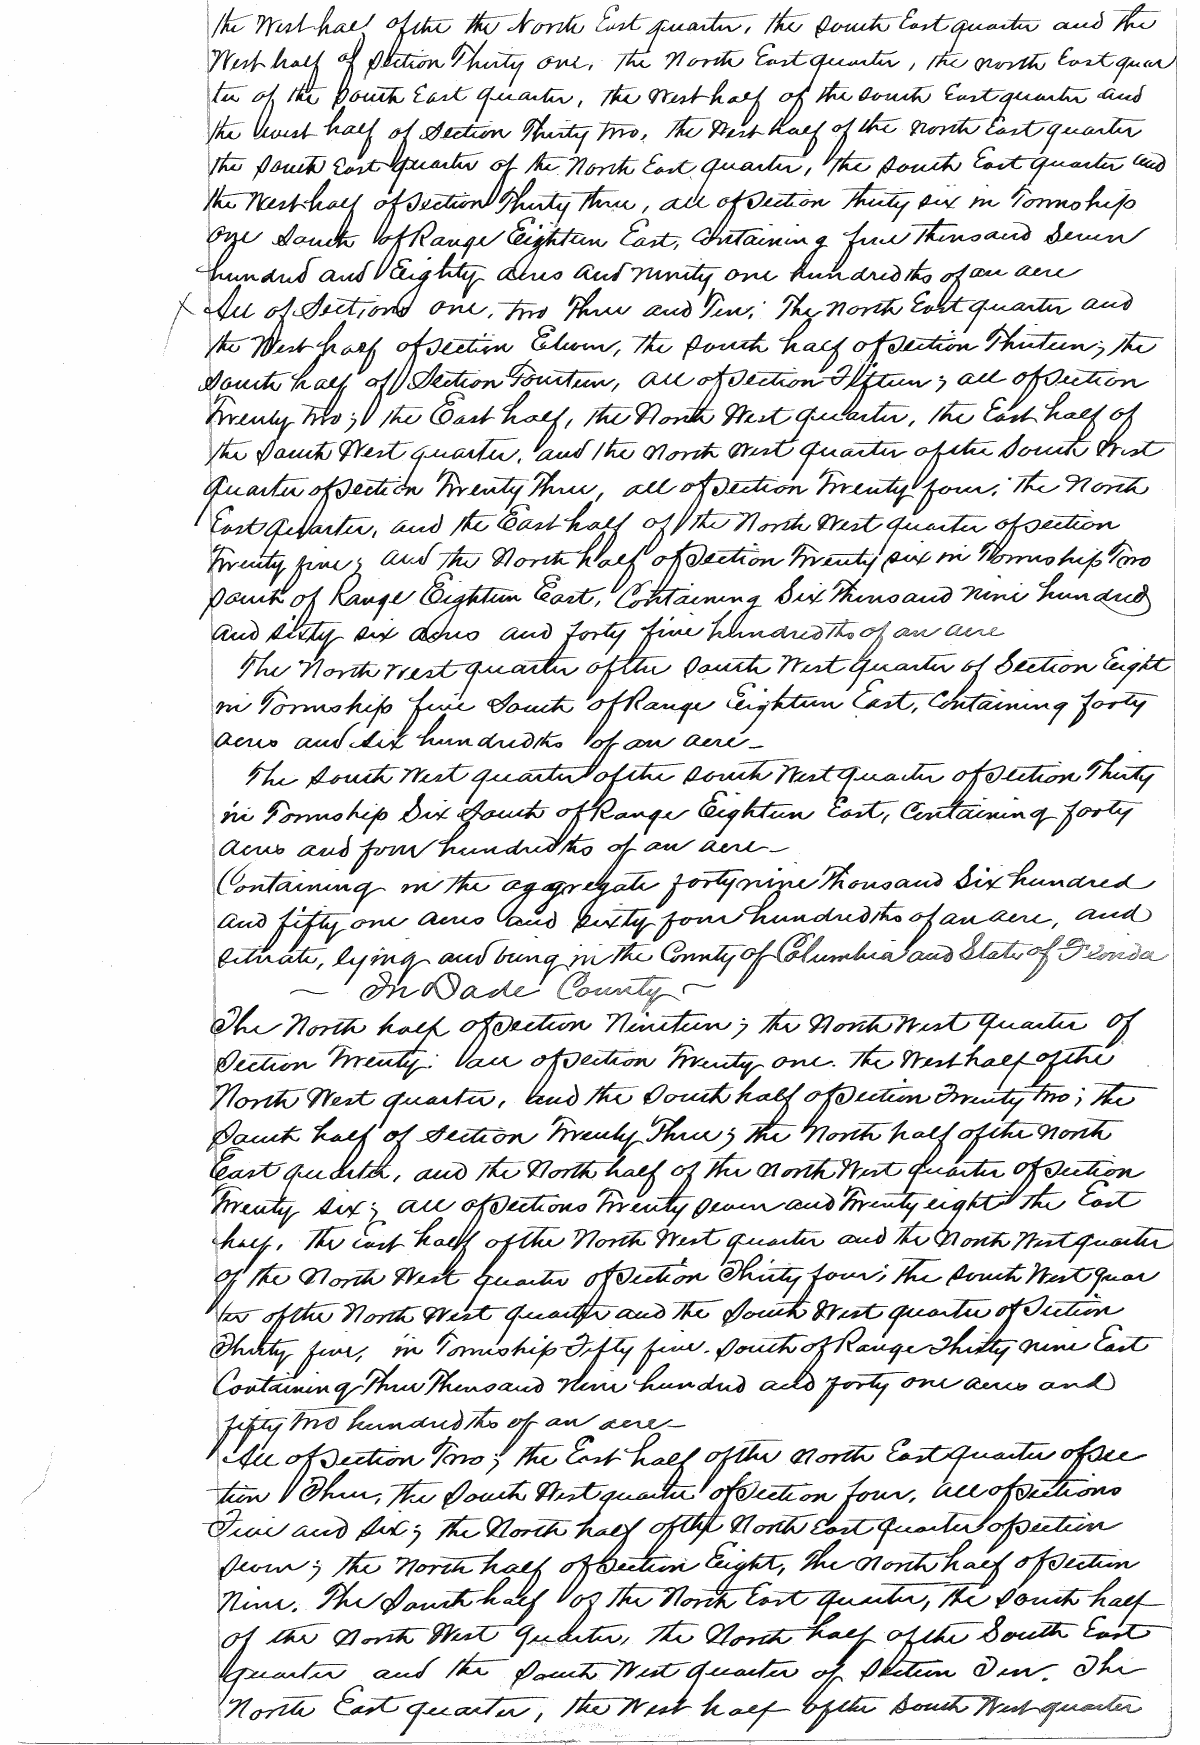 the West half of the the North East quarter, the South East quarter and the
West half of Section Thirty one, the North East quarter, the north East quar
ter of the South East quarter, the West half of the South East quarter and
the West half of Section Thirty two, the West half of the North East quarter
the South East quarter of the North East quarter, the South East quarter and
the West half of Section Thirty three, all of Section Thirty six in Township
one South of Range Eighteen East, Containing five Thousand Seven
hundred and Eighty acres and ninety one hundredths of an acre
X All of Sections one, two Three and Ten; The North East quarter and
the West half of Section Eleven, the South half of Section Thirteen; the
South half of Section Fourteen, all of Section Fifteen; all of Section
Twenty two; the East half, the North West quarter, the East half of
the South West quarter, and the North West quarter of the South West
Quarter of Section Twenty Three, all of Section Twenty four; the North
East quarter, and the East half of the North West quarter of Section
Twenty five; and the North half of Section Twenty six in Township Two
South of Range Eighteen East, Containing Six Thousand nine hundred
and sixty six acres and forty five hundredths of an acre
The North West quarter of the South West Quarter of Section Eight
in Township five South of Range Eighteen East, Containing forty
acres and six hundredths of an acre—
The South West quarter of the South West quarter of Section Thirty
in Township Six South of Range Eighteen East, Containing forty
acres and four hundredths of an acre—
Containing in the aggregate forty nine Thousand Six hundred
and fifty one acres and sixty four hundredths of an acre, and
situate, lying and being in the County of Columbia and State of Florida
— In Dade County —
The North half of Section Nineteen; the North West Quarter of
Section Twenty: all of Section Twenty one. the West half of the
North West quarter, and the South half of Section Twenty two; the
South half of Section Twenty Three; the North half of the North
East quarter, and the North half of the North West quarter of Section
Twenty six; all of Sections Twenty seven and Twenty eight the East
half, the East half of the North West quarter and the North West quarter
of the North West quarter of Section Thirty four; the South West quar
ter of the North West quarter and the South West quarter of Section
Thirty five, in Township Fifty five. South of Range Thirty nine East
Containing Three Thousand Nine hundred and forty one acres and
fifty two hundredths of an acre—
All of Section Two; the East half of the North East quarter of Sec
tion Three, the South West quarter of Section four, all of Sections
Five and Six; the North half of the North East Quarter of Section
Seven; the North half of Section Eight, The North half of Section
Nine. The South half of the North East quarter, the South half
of the North West Quarter, the North half of the South East
quarter and the South West quarter of Section Ten. The
North East quarter, the West half of the South West quarter